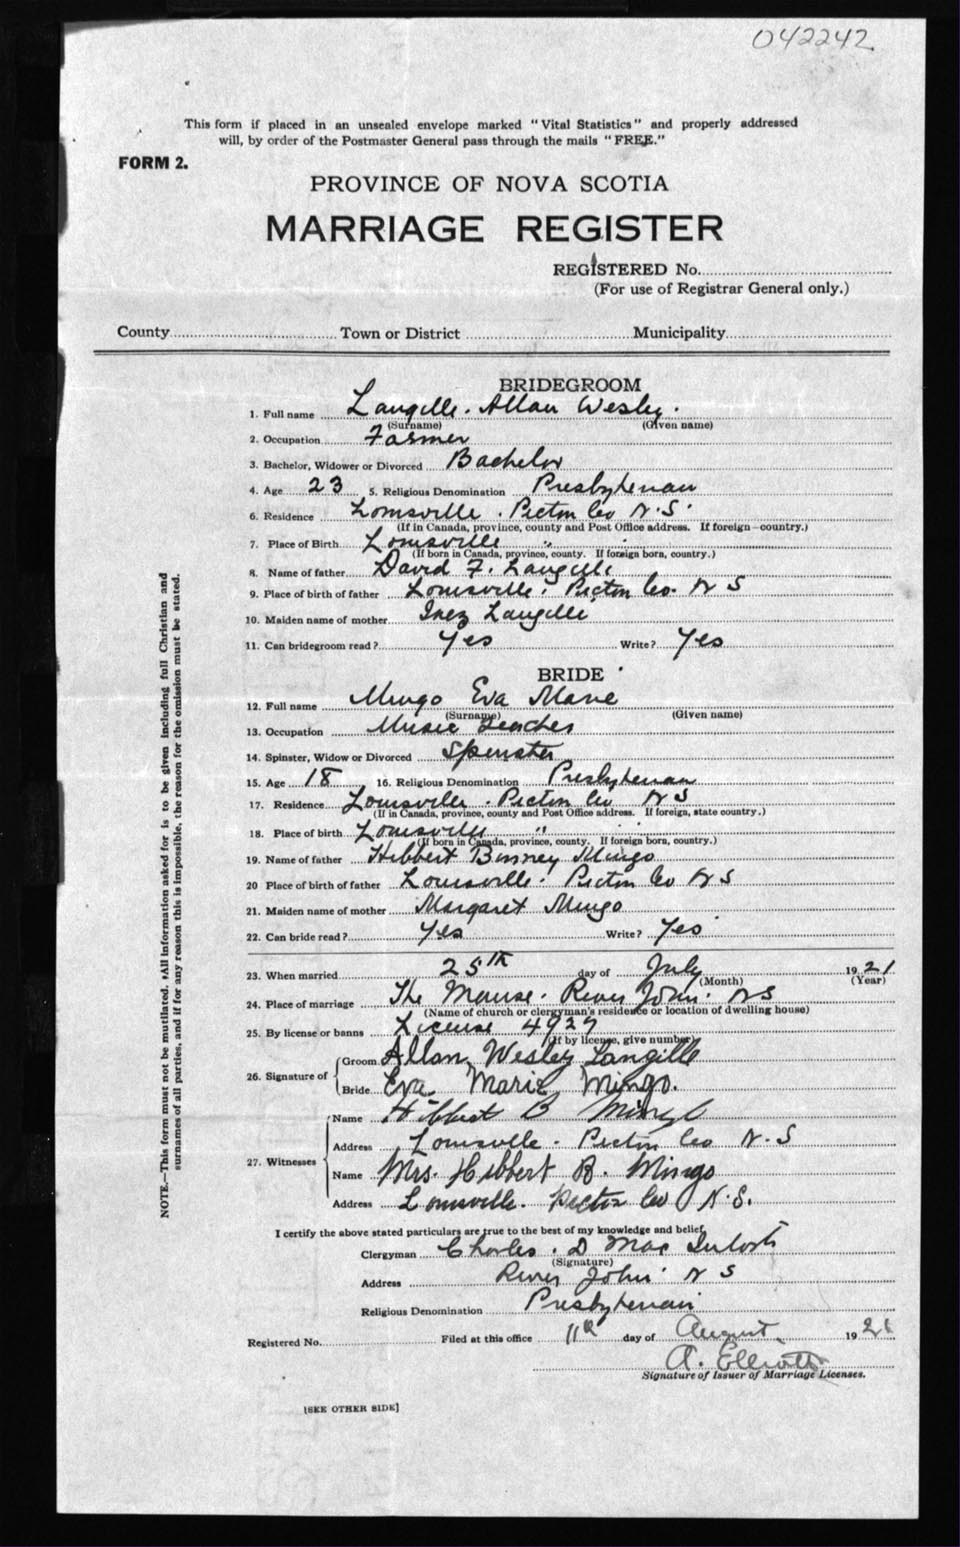 042242
This form if placed in an unsealed envelope marked "Vital Statistics" and properly addressed
will, by order of the Postmaster General pass through the mails "FREE."
FORM 2.
PROVINCE OF NOVA SCOTIA
MARRIAGE REGISTER
REGISTERED No.
(For use of Registrar General only.)
County Town or District Municipality
BRIDEGROOM
1. Full name Langille. Allan Wesley.
(Surname) (Given name)
2. Occupation Farmer
3. Bachelor, Widower or Divorced Bachelor
4. Age 23 5. Religious Denomination Presbyterian
6. Residence Louisville. Pictou Co N.S.
(If in Canada, province, county and Post Office address. If foreign—country.)
7. Place of Birth Louisville " "
(If born in Canada, province, county. If foreign born, country.)
8. Name of father David F. Langille
9. Place of birth of father Louisville. Pictou Co. N S
10. Maiden name of mother Inez Langille
11. Can bridegroom read? Yes Write? Yes
BRIDE
12. Full name Mingo Eva Marie
(Surname) (Given name)
13. Occupation Music Teacher
14. Spinster, Widow or Divorced Spinster
15. Age 18 16. Religious Denomination Presbyterian
17. Residence Louisville. Pictou Co N S
(If in Canada, province, county and Post Office address. If foreign, state country.)
18. Place of birth Louisville "
(If born in Canada, province, county. If foreign born, country.)
19. Name of father Hibbert Binney Mingo
20 Place of birth of father Louisville. Pictou Co N S
21. Maiden name of mother Margaret Mingo
22. Can bride read? Yes Write? Yes
23. When married 25th day of July 1921
(Month) (Year)
24. Place of marriage The Manse. River John. N S
(Name of church or clergyman's residence or location of dwelling house)
25. By license or banns License 4927
(If by license, give number)
26. Signature of Groom Allan Wesley Langille
Bride Eva Marie Mingo.
27. Witnesses Name Hibbert B Mingo
Address Louisville. Pictou Co N.S
Name Mrs. Hibbert B. Mingo
Address Louisville. Pictou Co N.S.
I certify the above stated particulars are true to the best of my knowledge and belief,
Clergyman Charles. D Mac Intosh
(Signature)
Address River John. N S
Religious Denomination Presbyterian
Registered No. Filed at this office 11th day of August 1921
A. Elliott
Signature of Issuer of Marriage Licenses.
[SEE OTHER SIDE]
NOTE.—This form must not be mutilated. All information asked for is to be given including full Christian and
surnames of all parties, and if for any reason this is impossible, the reason for the omission must be stated.